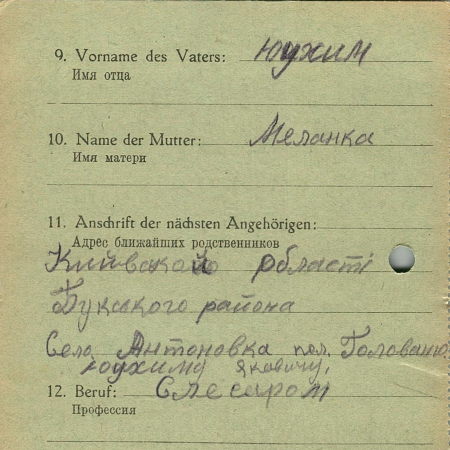 9. Vorname des Vaters: Юухим
Имя отца
10. Name der Mutter: Меланка
Имя матери
11. Anschrift der nächsten Angehörigen:
Адрес ближайших родственников
Київской області
Букського района
Село Антоновка пол. Голованю
Юухиму Яковичу,
12. Beruf: Слесаром
Профессия